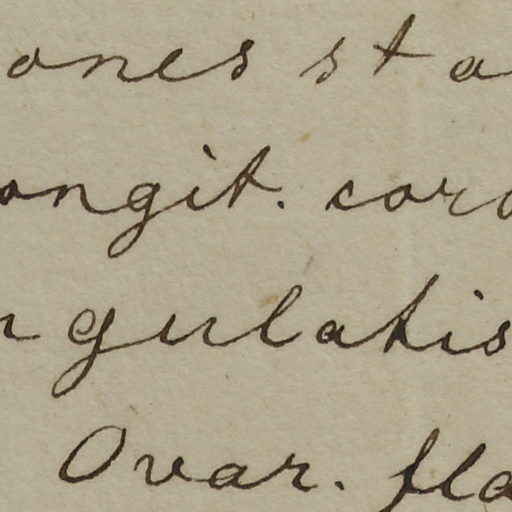 ones sta
ongit. coro
ngulatis
Ovar. fla